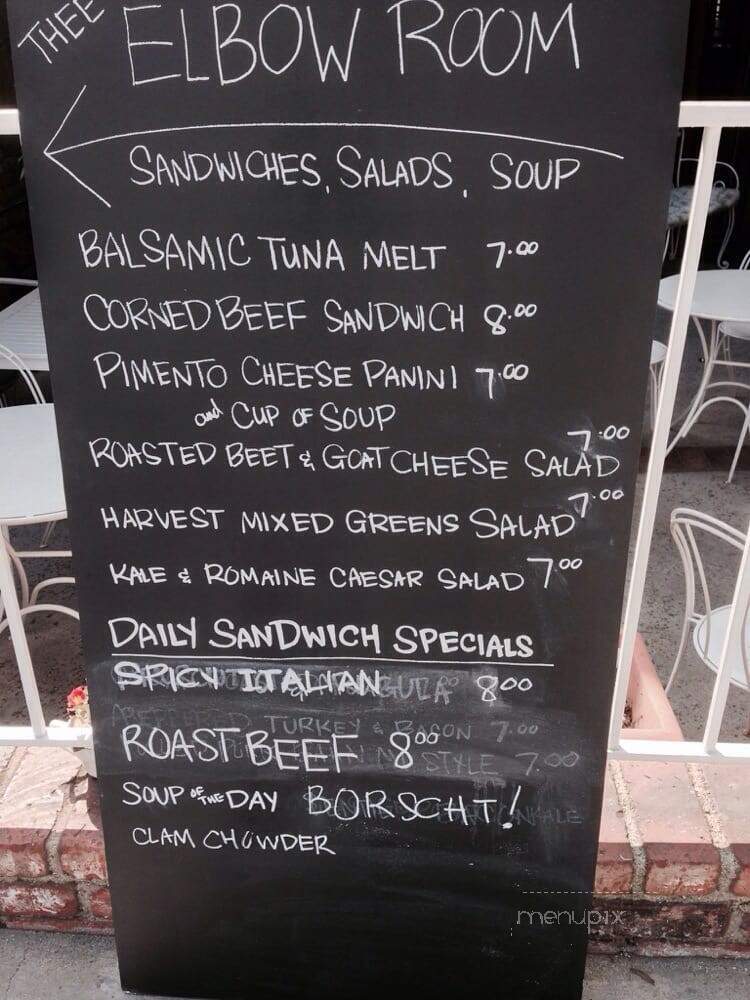 THEE ELBOW ROOM
SANDWICHES, SALADS, SOUP
BALSAMIC TUNA MELT 7.00
CORNED BEEF SANDWICH 8.00
PIMENTO CHEESE PANINI 7.00
and CUP OF SOUP
ROASTED BEET & GOAT CHEESE SALAD 7.00
HARVEST MIXED GREENS SALAD 7.00
KALE & ROMAINE CAESAR SALAD 7.00
DAILY SANDWICH SPECIALS
SPICY ITALIAN 8.00
TURKEY & BACON 7.00
ROAST BEEF 8.00
STYLE 7.00
SOUP OF THE DAY BORSCHT!
CLAM CHOWDER
menupix